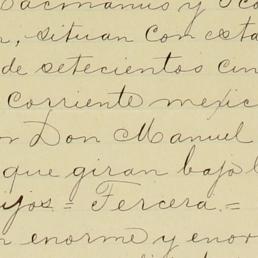 Macmanus y
n, situan con esta
de setecientos cin
corriente mexic
on Don Manuel
que giran bajo l
ijos = Tercera. =
n enorme y enor